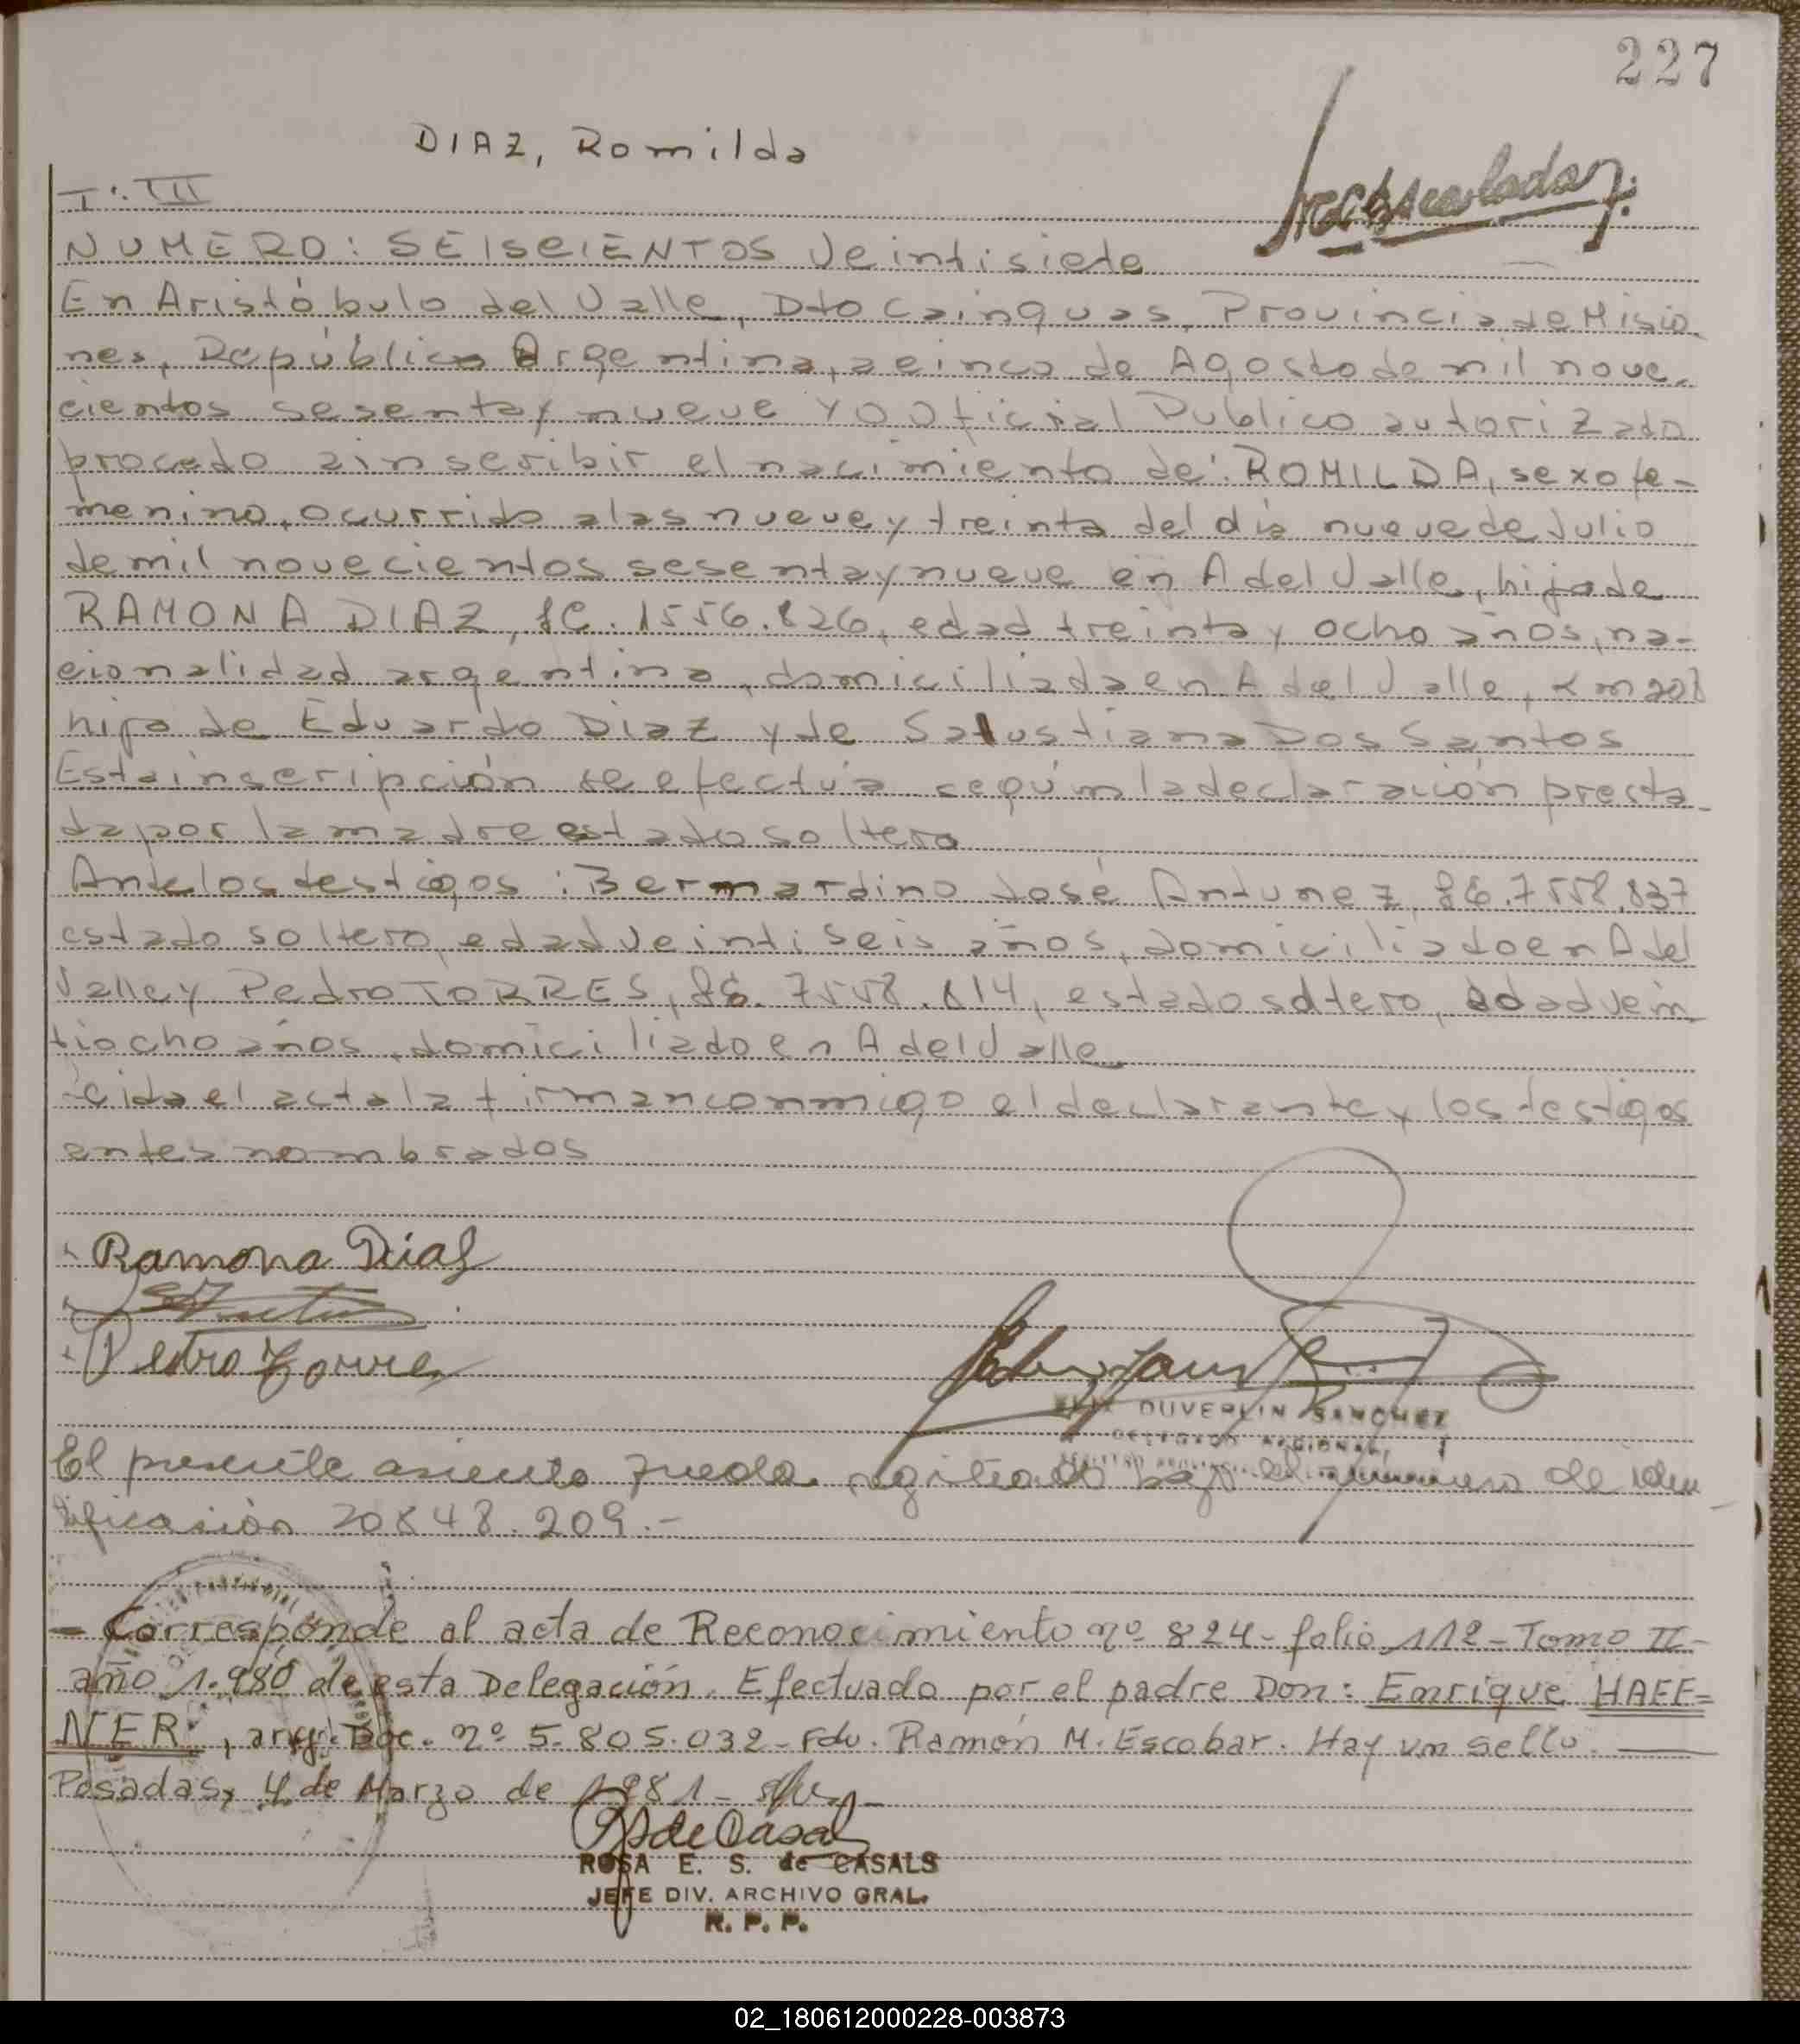 227
DIAZ, Romilda
T: III
NUMERO: SEISCIENTOS Veintisiete
En Aristóbulo del Valle, Dto Cainguas, Provincia de Misio-
nes, República Argentina, a cinco de Agosto de mil nove-
cientos sesenta y nueve Yo Oficial Publico autorizado
procedo a inscribir el nacimiento de: ROMILDA, sexo fe-
menino, ocurrido a las nueve y treinta del día nueve de Julio
de mil novecientos sesenta y nueve en A del Valle, hija de
RAMONA DIAZ, LC. 1556.826, edad treinta y ocho años, na-
cionalidad argentina, domiciliada en A del Valle, Km 208
hija de Eduardo Diaz y de Salustiana Dos Santos
Esta inscripción se efectúa según la declaración presta-
da por la madre estado soltera
Ante los testigos: Bernardino José Antunez, LE. 7558.837
estado soltero, edad veintiseis años, domiciliado en A del
Valle y Pedro TORRES, LE. 7558.814, estado soltero, edad vein-
tiocho años, domiciliado en A del Valle
eida el acta la firman conmigo el declarante y los testigos
antes nombrados
Ramona Dias
Pedro Torres
DUVERLIN SANCHEZ
DELEGADO REGIONAL
El presente asiento queda registrado bajo el numero de iden-
tificasión 20848.209.-
- Corresponde al acta de Reconocimiento nº 824- folio 112- Tomo II-
año 1.980 de esta Delegación. Efectuado por el padre Don: Enrique HAEF=
NER, arg. Doc. nº 5.805.032- Fdo. Ramón M. Escobar. Hay un sello.
Posadas, 4 de Marzo de 1981-
R S de Casals
ROSA E. S. de CASALS
JEFE DIV. ARCHIVO GRAL.
R. P. P.
02_180612000228-003873